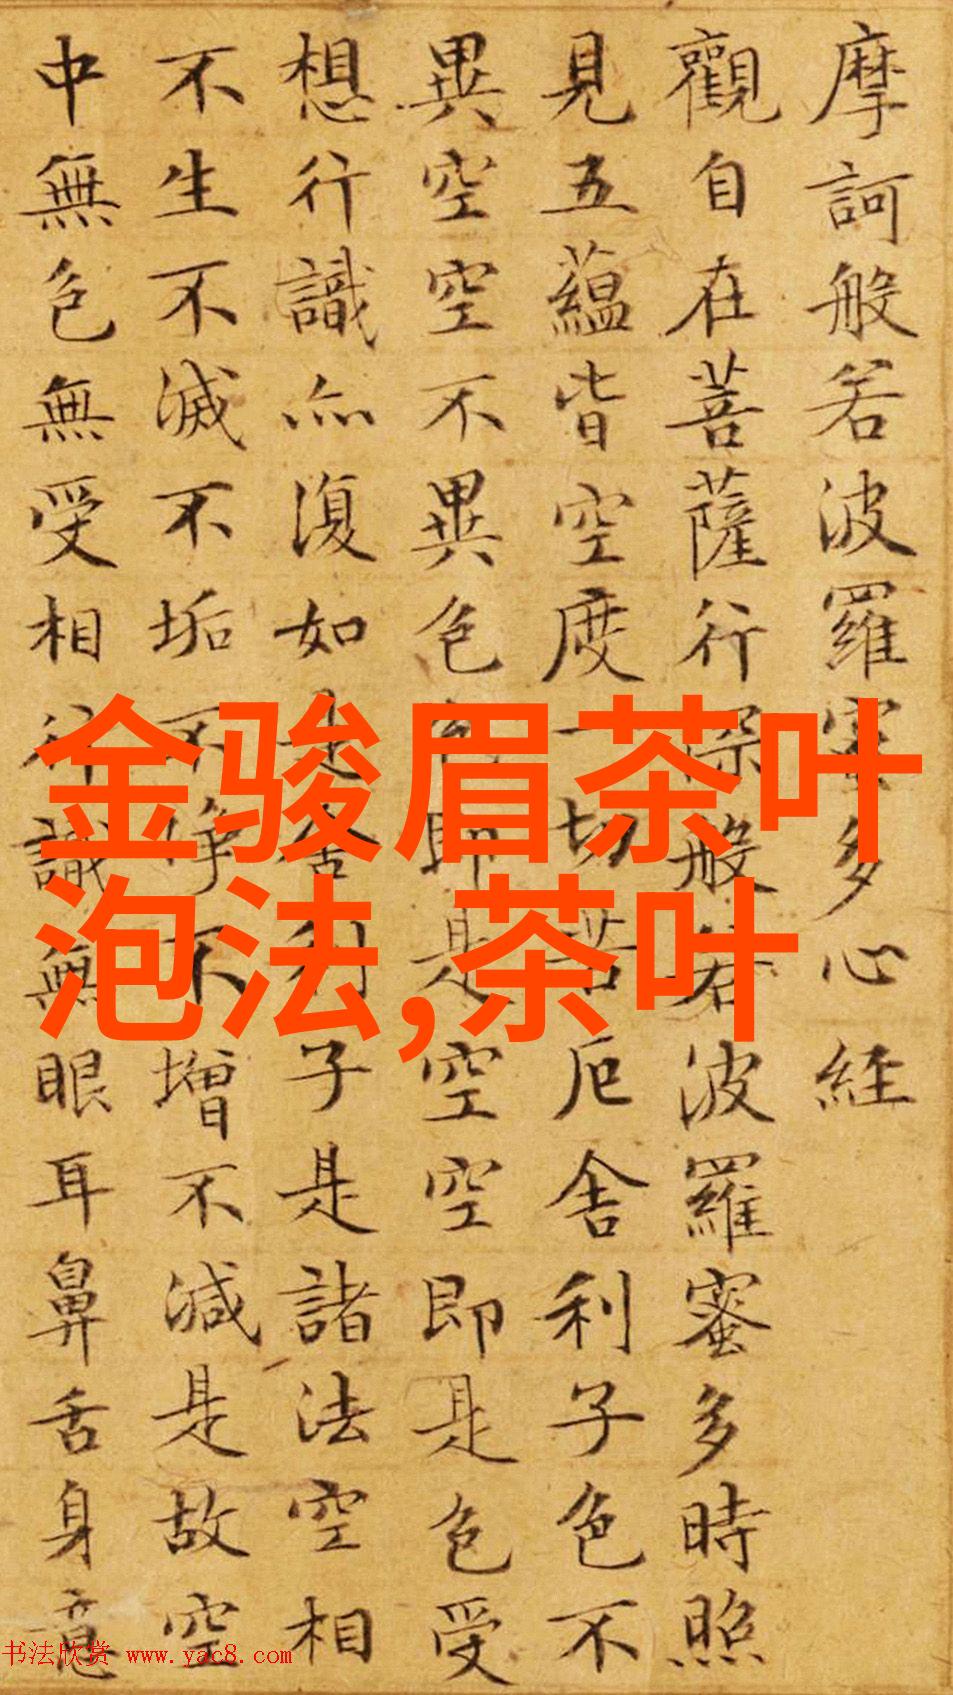 摩訶般若波羅蜜多心経
觀自在菩薩行深般若波羅蜜多時照
見五蘊皆空度一切苦厄舍利子色不
異空空不異色色即是空空即是色受
想行識亦復如是舍利子是諸法空相
不生不滅不垢不净不增不減是故空
中無色無受相行識無眼耳鼻舌身意
金骏眉茶叶
泡法,茶叶
书法欣赏 www.yac8.com